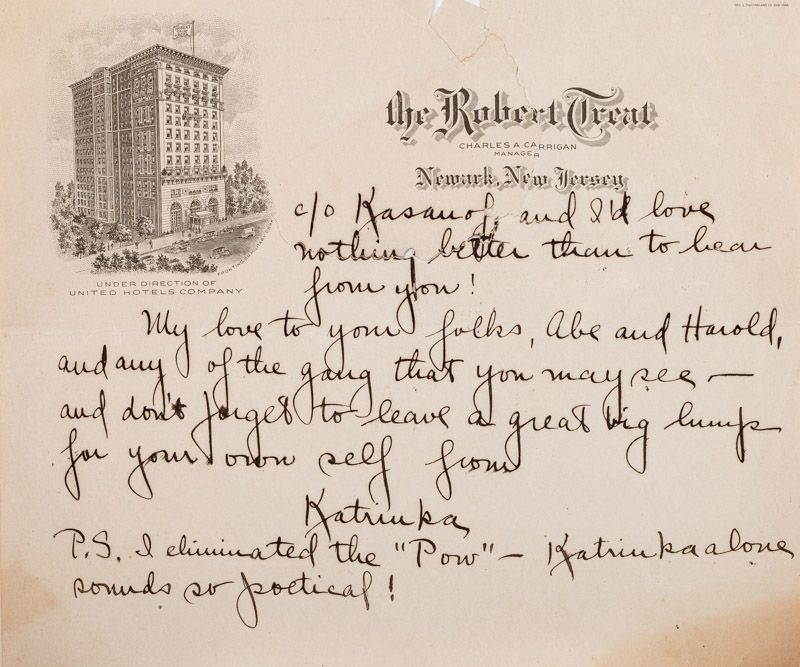 the Robert Treat
CHARLES A. CARRIGAN
MANAGER
Newark, New Jersey
UNDER DIRECTION OF
UNITED HOTELS COMPANY
c/o Kasanof, and I'd love
nothing better than to hear
from you!
My love to your folks, Abe and Harold,
and any of the gang that you may see —
and don't forget to leave a great big lump
for your own self from
Katrinka
P.S. I eliminated the "Pow" — Katrinka alone
sounds so poetical!